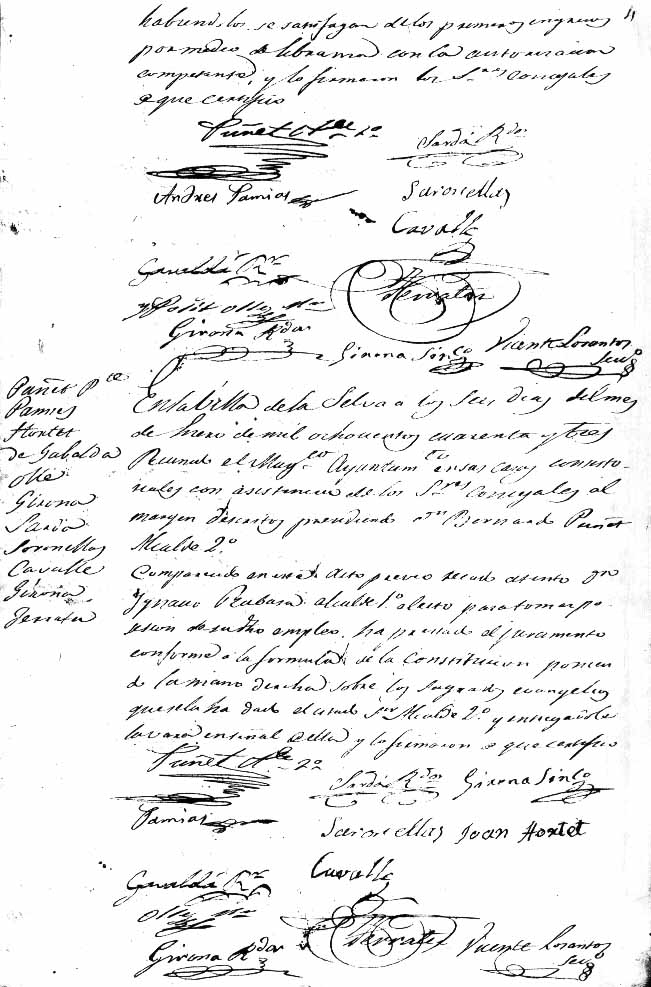 habiend. los se satisfagan de los primeros ingresos
por medio de libranza con la autorizacion
competente, y lo firmaron los S.res Concejales
de que certifico
Puñet Alc.e 2.o
Sardá R.dor
Andres Pamias
Saronellas
Cavallé
Gavaldá R.r
Girona R.dor
Ferrater
Girona Sínco
Vicente Lorantos
Secro
Puñet P.te
Pamies
Hortet
de Gabalda
Ollé
Girona
Sardá
Soronellas
Cavalle
Girona
Ferrater
En la Villa de la Selva a los seis dias del mes
de Enero de mil ochocientos cuarenta y tres
Reunido el Muy Ayuntam.to en sas casas consisto-
riales con asistencia de los S.res Concejales al
margen descritos presidiendo Bernardo Puñet
Alcalde 2.o
Compareciendo en este Acto previo recado atento Dn
Ygnacio alcalde 1.o electo para tomar po-
sesion de su empleo, ha prestado el juramento
conforme a la formula de la Constitucion ponien
do la mano derecha sobre los Sagrados evangelios
que se la ha dado el citado Sor Alcalde 2.o y entregandole
la vara en señal de ella y lo firmaron de que certifico
Puñet Alc.e 2.o
Sardá R.dor
Girona Sínco
Pamias
Saronellas
Joan Hortet
Gavaldá R.r
Cavallé
Girona R.dor
Ferrater
Vicente Lorantos
Secro